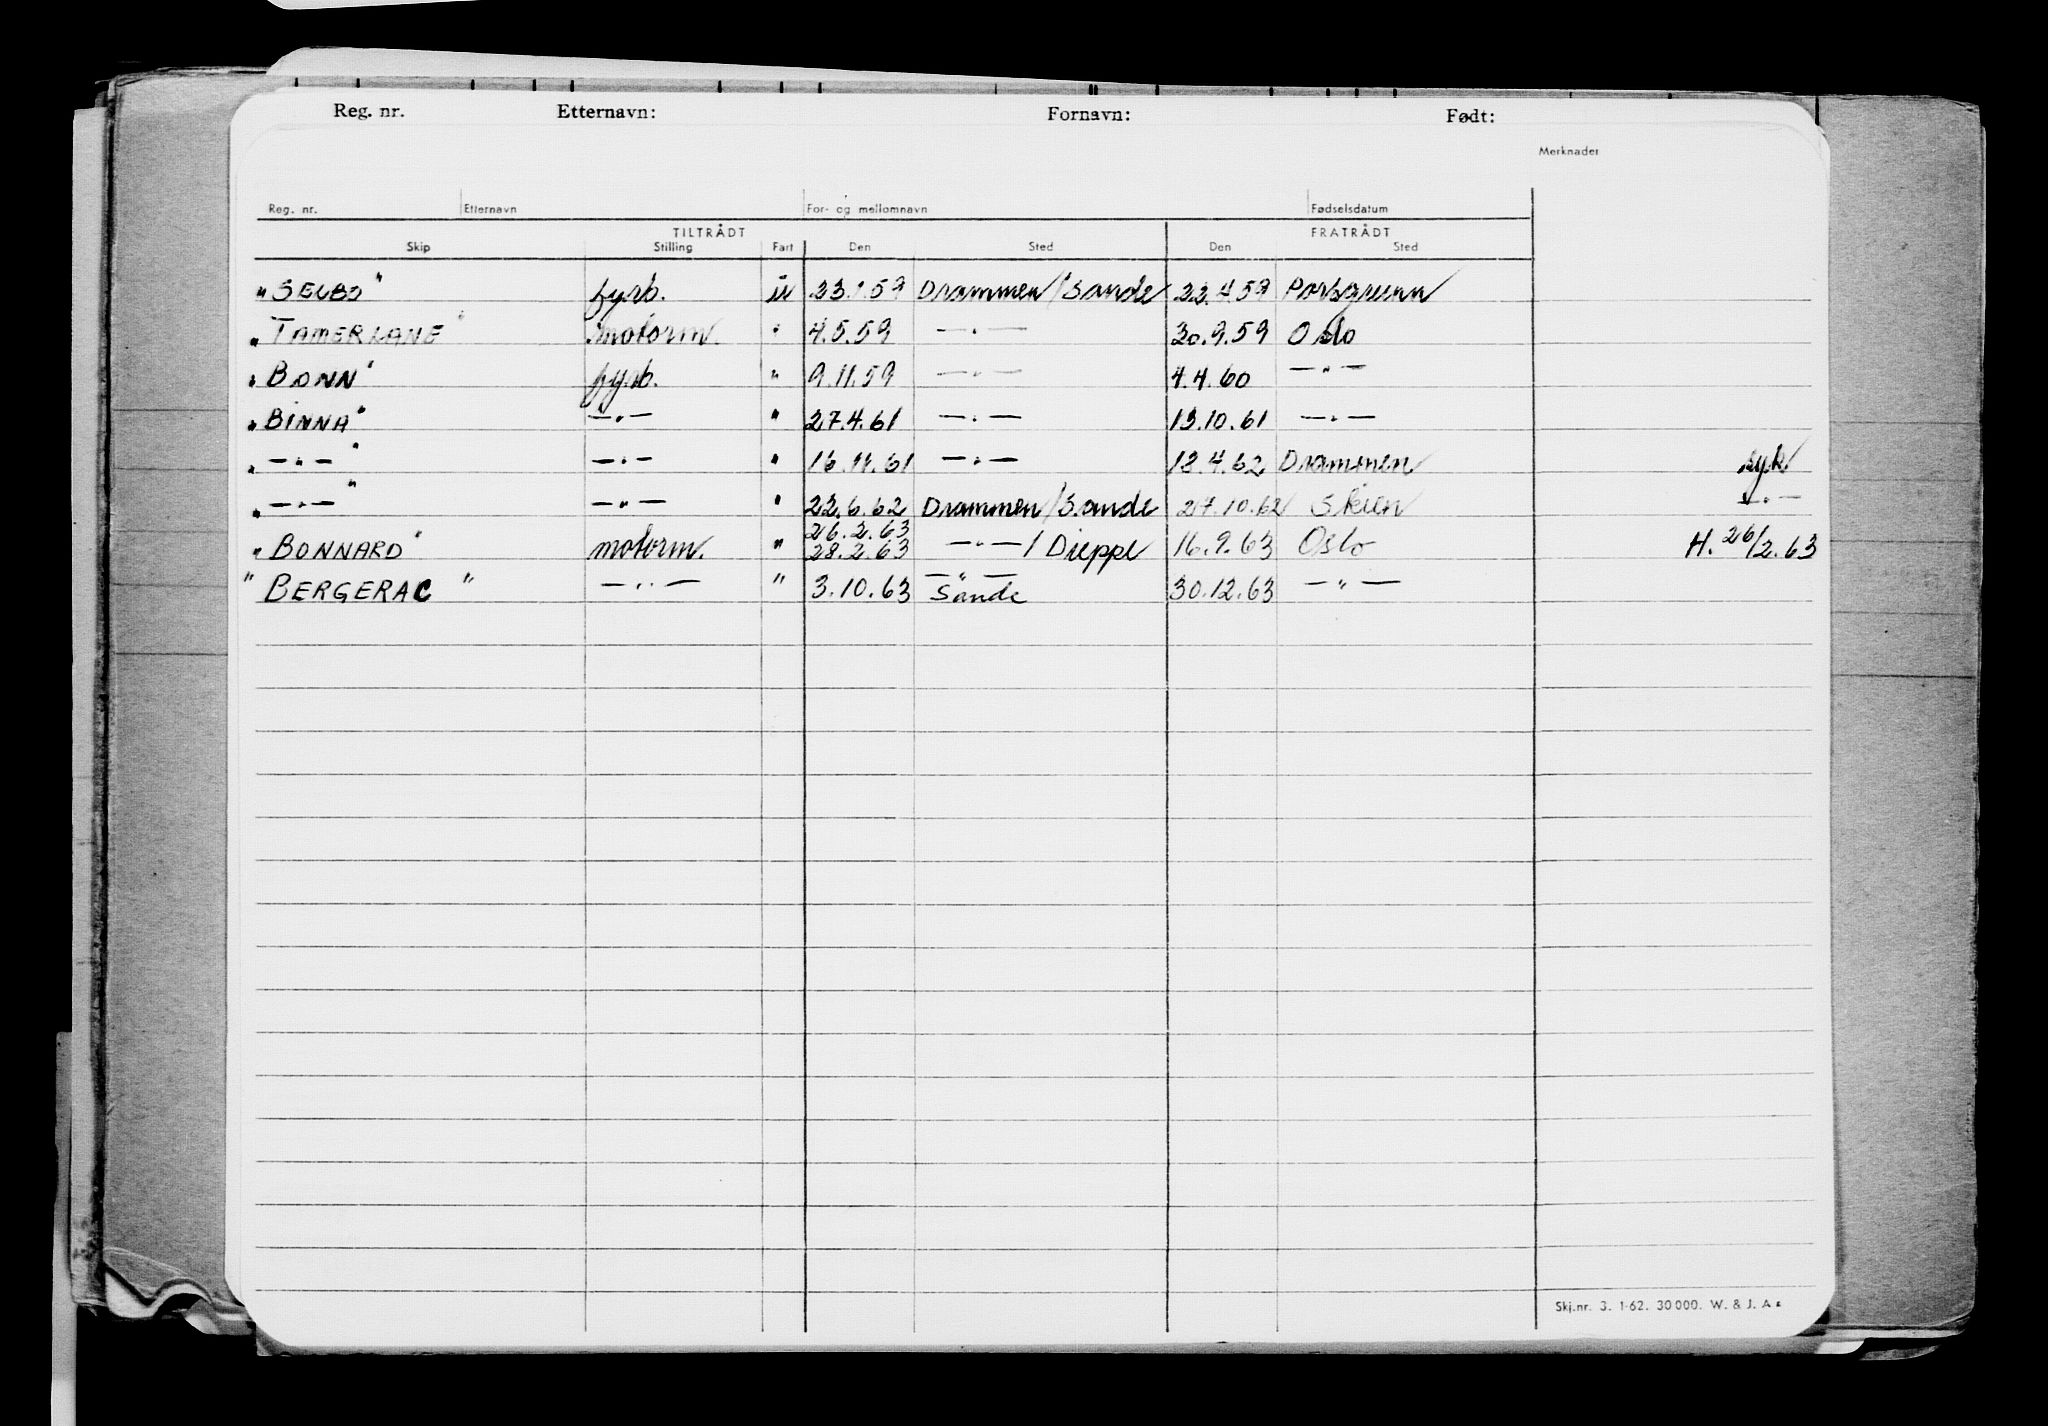 Reg. nr. Etternavn: Fornavn: Født:
Merknader
Reg. nr. Etternavn For- og mellomnavn Fødselsdatum
TILTRÅDT FRATRÅDT
Skip Stilling Fart Den Sted Den Sted
"SELBO" fyrb. u 23.1.59 Drammen/Sande 22.4.59 Porsgrunn
"TAMERLANE" motorm. " 4.5.59 —"— 30.9.59 Oslo
"BONN" fyrb. " 9.11.59 —"— 4.4.60 —"—
"BINNA" —"— " 27.4.61 —"— 13.10.61 —"—
"—"—" —"— " 16.11.61 —"— 18.4.62 Drammen syk
"—"—" —"— " 22.6.62 Drammen/Sande 27.10.62 Skien —"—
26.2.63
"BONNARD" motorm. " 28.2.63 —"—/Dieppe 16.9.63 Oslo H. 26/2.63
"BERGERAC" —"— " 3.10.63 —"— Sande 30.12.63 —"—
Skj.nr. 3. 1-62. 30000. W. & J. A